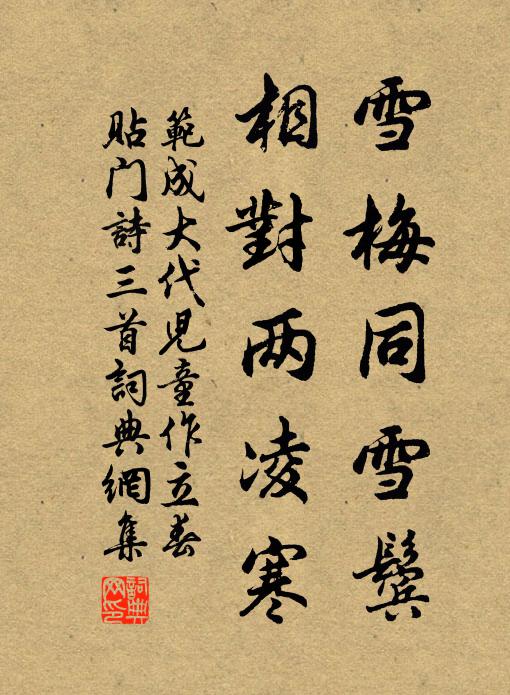 雪梅同雪鬓
相對两凌寒
範成大代児童作立春
贴门詩三首詞典網集
詞典网印